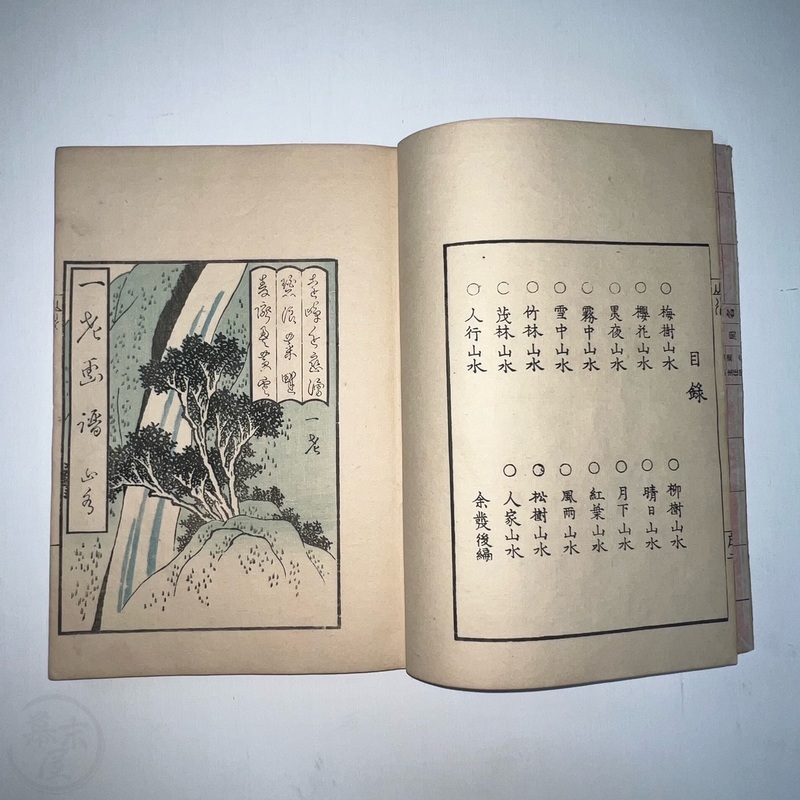 目錄
○梅樹山水
○櫻花山水
○黒夜山水
○霧中山水
○雪中山水
○竹林山水
○茂林山水
○人行山水
○柳樹山水
○晴日山水
○月下山水
○紅葉山水
○風雨山水
○松樹山水
○人家山水
余發後編
一老
一老画譜 山水
幕末屋